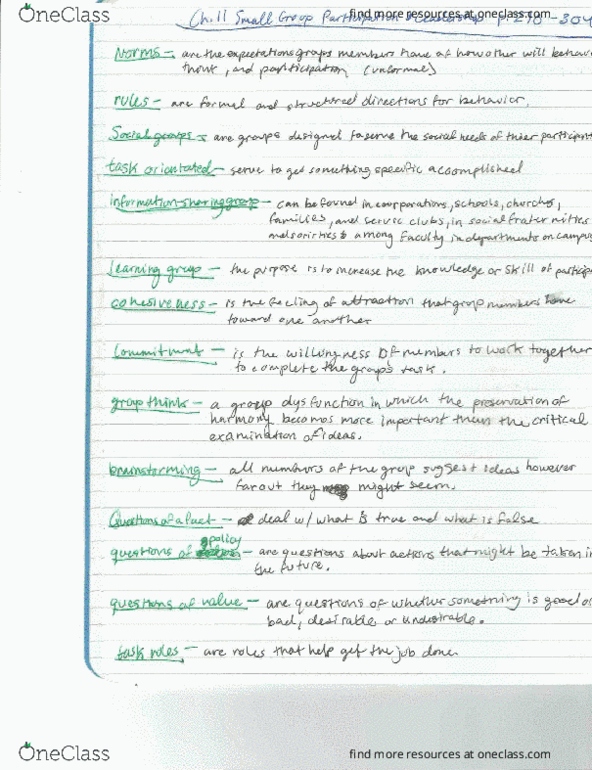 OneClass
find more resources at oneclass.com
Ch.11 Small Group Participation
304
Norms - are the expectations groups members have of how other will behave
think, and participation (unformal)
rules - are formal and structured directions for behavior.
Social groups - are groups designed to serve the social needs of their participant
task orientated - serve to get something specific accomplished
information-sharing group - can be found in corporations, schools, churches,
families, and service clubs, in social fraternities
and sororities & among faculty in departments on campus
learning group - the purpose is to increase the knowledge or skill of particip
cohesiveness - is the feeling of attraction that group members have
toward one another
Commitment - is the willingness of members to work together
to complete the group's task.
group think - a group dysfunction in which the preservation of
harmony becomes more important than the critical
examination of ideas.
brainstorming - all members of the group suggest ideas however
far out they might seem.
Questions of a fact - deal w/ what is true and what is false
questions of policy - are questions about actions that might be taken in
the future.
questions of value - are questions of whether something is good or
bad, desirable or undesirable.
task roles - are roles that help get the job done
OneClass
find more resources at oneclass.com